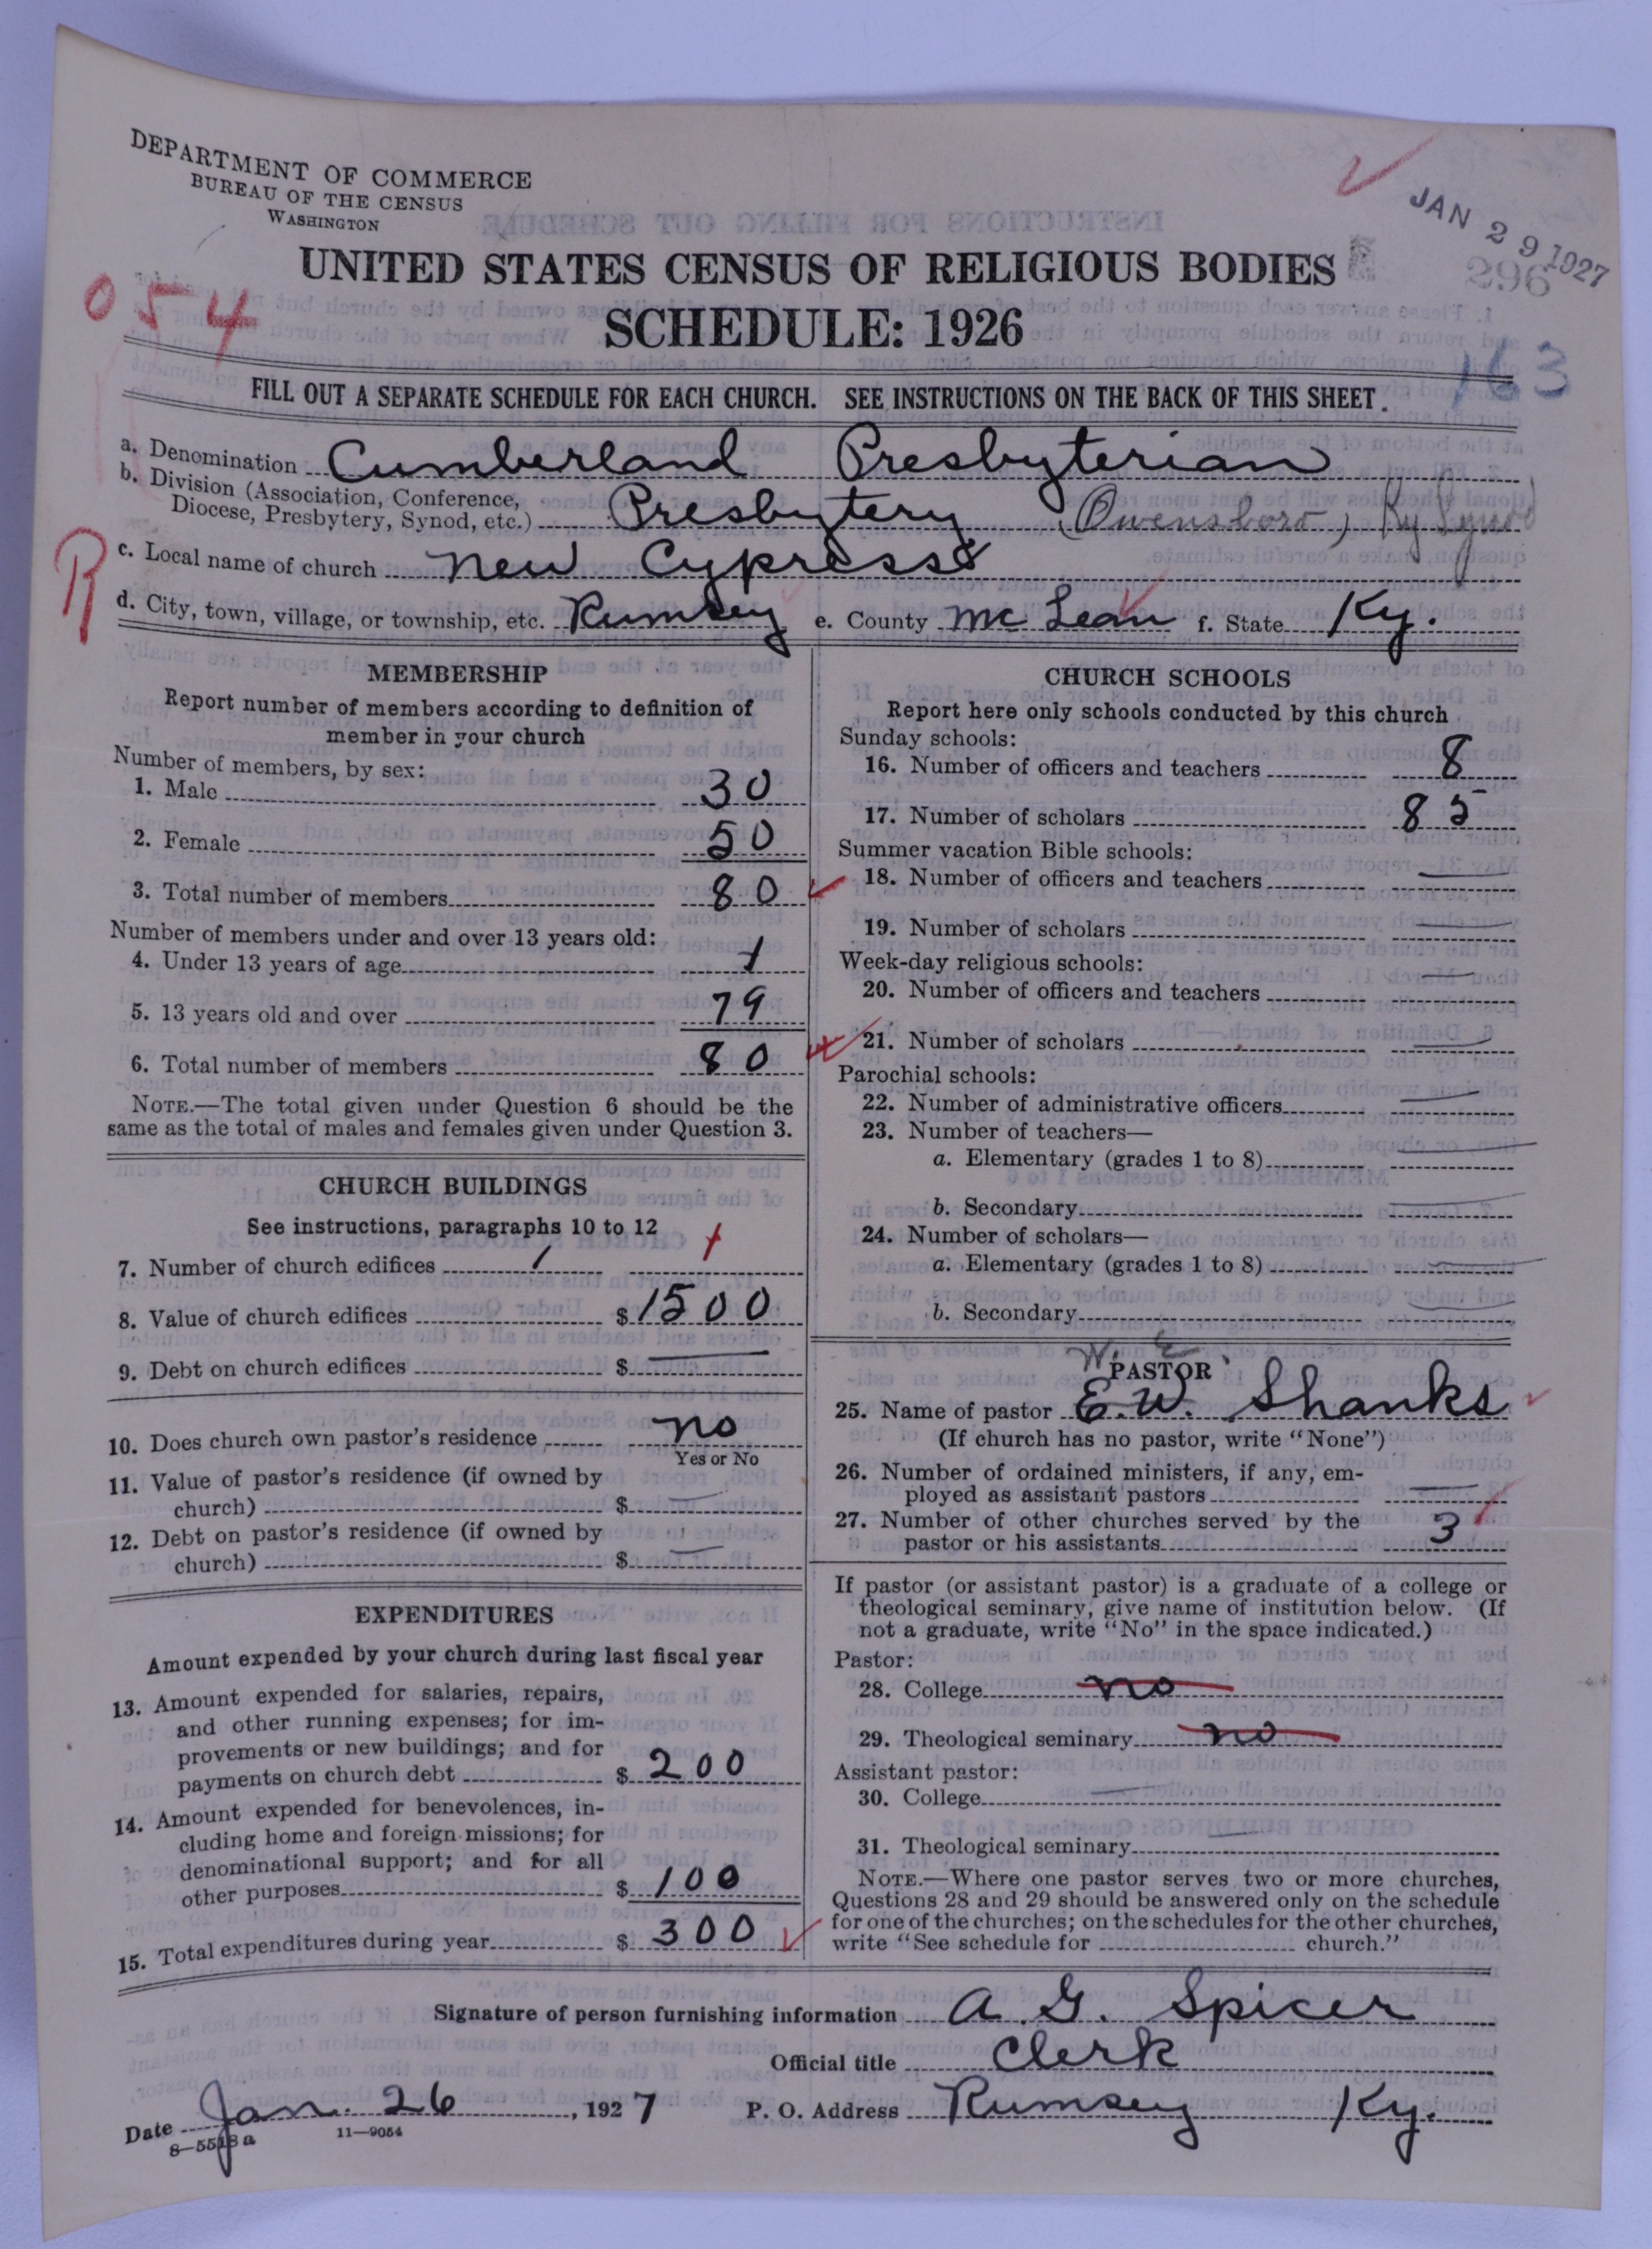 DEPARTMENT OF COMMERCE
BUREAU OF THE CENSUS
WASHINGTON
JAN 29 1927
296
UNITED STATES CENSUS OF RELIGIOUS BODIES
054
SCHEDULE: 1926
163
FILL OUT A SEPARATE SCHEDULE FOR EACH CHURCH. SEE INSTRUCTIONS ON THE BACK OF THIS SHEET.
a. Denomination Cumberland Presbyterian
b. Division (Association, Conference,
Diocese, Presbytery, Synod, etc.) Presbytery (Owensboro) Ky Synod
R
c. Local name of church New Cypress
d. City, town, village, or township, etc. Rumsey e. County McLean f. State Ky.
MEMBERSHIP
Report number of members according to definition of
member in your church
Number of members, by sex:
1. Male 30
2. Female 50
3. Total number of members 80
Number of members under and over 13 years old:
4. Under 13 years of age 1
5. 13 years old and over 79
6. Total number of members 80
NOTE.—The total given under Question 6 should be the
same as the total of males and females given under Question 3.
CHURCH BUILDINGS
See instructions, paragraphs 10 to 12
7. Number of church edifices 1 1
8. Value of church edifices $ 1500
9. Debt on church edifices $ —
10. Does church own pastor's residence no
Yes or No
11. Value of pastor's residence (if owned by
church) $ —
12. Debt on pastor's residence (if owned by
church) $ —
EXPENDITURES
Amount expended by your church during last fiscal year
13. Amount expended for salaries, repairs,
and other running expenses; for im-
provements or new buildings; and for
payments on church debt $ 200
14. Amount expended for benevolences, in-
cluding home and foreign missions; for
denominational support; and for all
other purposes $ 100
15. Total expenditures during year $ 300
CHURCH SCHOOLS
Report here only schools conducted by this church
Sunday schools:
16. Number of officers and teachers 8
17. Number of scholars 85
Summer vacation Bible schools:
18. Number of officers and teachers —
19. Number of scholars —
Week-day religious schools:
20. Number of officers and teachers —
21. Number of scholars —
Parochial schools:
22. Number of administrative officers —
23. Number of teachers—
a. Elementary (grades 1 to 8) —
b. Secondary —
24. Number of scholars—
a. Elementary (grades 1 to 8) —
b. Secondary —
W. E.
PASTOR
25. Name of pastor E.W. Shanks
(If church has no pastor, write "None")
26. Number of ordained ministers, if any, em-
ployed as assistant pastors —
27. Number of other churches served by the
pastor or his assistants 3
If pastor (or assistant pastor) is a graduate of a college or
theological seminary, give name of institution below. (If
not a graduate, write "No" in the space indicated.)
Pastor:
28. College no
29. Theological seminary no
Assistant pastor:
30. College —
31. Theological seminary —
NOTE.—Where one pastor serves two or more churches,
Questions 28 and 29 should be answered only on the schedule
for one of the churches; on the schedules for the other churches,
write "See schedule for church."
Signature of person furnishing information A. G. Spicer
Official title Clerk
Date Jan. 26, 1927 P. O. Address Rumsey Ky.
8—5518a 11—9054